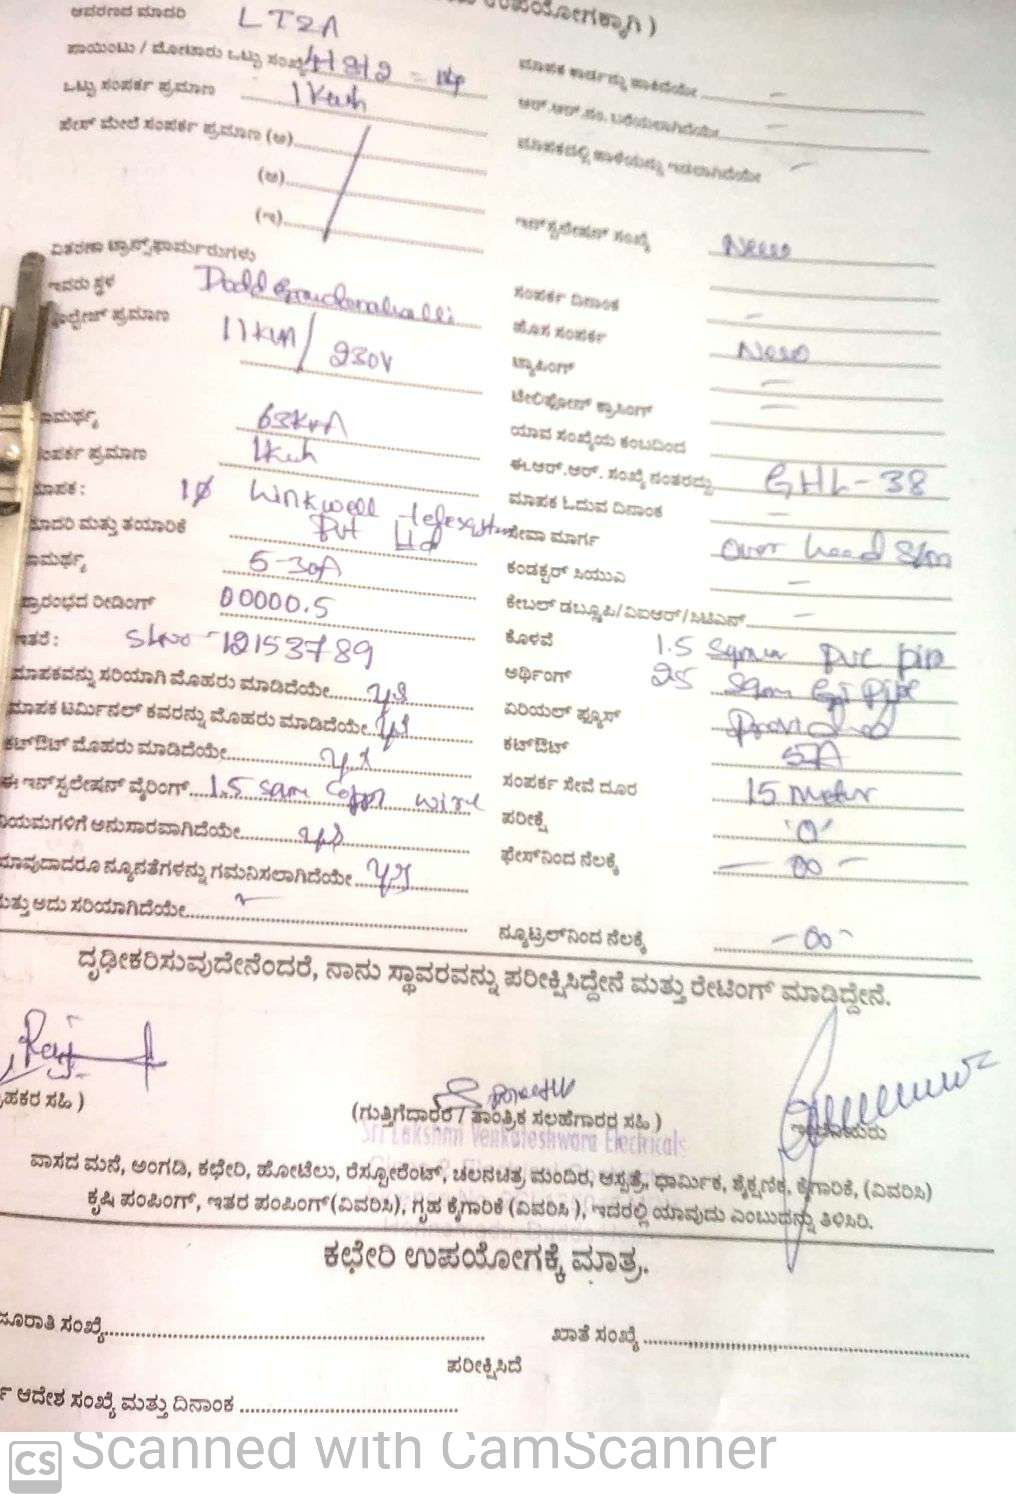 ಉಪಯೋಗಕ್ಕಾಗಿ )
ಆವರಣದ ಮಾದರಿ LT2A
ಪಾಯಿಂಟು / ಮೋಟಾರು ಒಟ್ಟು ಸಂಖ್ಯೆ
ಒಟ್ಟು ಸಂಪರ್ಕ ಪ್ರಮಾಣ 1Kwh
ಪೇಸ್ ಮೇಲೆ ಸಂಪರ್ಕ ಪ್ರಮಾಣ (ಅ)
(ಆ)
(ಇ)
ವಿತರಣಾ ಟ್ರಾನ್ಸ್‌ಫಾರ್ಮರುಗಳು
ಇವರು ಸ್ಥಳ Dodd Goudanahalli
ಪ್ರಮಾಣ 11KW/ 230V
63KVA
ಸಂಪರ್ಕ ಪ್ರಮಾಣ 1Kwh
ಮಾಪಕ : 1Ø Winkwell
ಮಾದರಿ ಮತ್ತು ತಯಾರಿಕೆ Pvt Ltd
5-30A
ಪ್ರಾರಂಭದ ರೀಡಿಂಗ್ 00000.5
ಇತರೆ : Slno -12153789
ಮಾಪಕವನ್ನು ಸರಿಯಾಗಿ ಮೊಹರು ಮಾಡಿದೆಯೇ
ಮಾಪಕ ಟರ್ಮಿನಲ್ ಕವರನ್ನು ಮೊಹರು ಮಾಡಿದೆಯೇ
ಕಟ್‌ಔಟ್ ಮೊಹರು ಮಾಡಿದೆಯೇ
ಈ ಇನ್‌ಸ್ಟಲೇಷನ್ ವೈರಿಂಗ್ 1.5 sqm wire
ನಿಯಮಗಳಿಗೆ ಅನುಸಾರವಾಗಿದೆಯೇ
ಯಾವುದಾದರೂ ನ್ಯೂನತೆಗಳನ್ನು ಗಮನಿಸಲಾಗಿದೆಯೇ
ಮತ್ತು ಅದು ಸರಿಯಾಗಿದೆಯೇ
ಮಾಪಕ ಕಾರ್ಡನ್ನು ಹಾಕಿದೆಯೇ –
ಆರ್.ಆರ್.ಸಂ. ಬರೆಯಲಾಗಿದೆಯೇ –
ಮಾಪಕದಲ್ಲಿ ಹಾಳೆಯನ್ನು ಇಡಲಾಗಿದೆಯೇ –
ಇನ್‌ಸ್ಟಲೇಷನ್ ಸಂಖ್ಯೆ New
ಸಂಪರ್ಕ ದಿನಾಂಕ –
ಹೊಸ ಸಂಪರ್ಕ New
ಟ್ಯಾಪಿಂಗ್ –
ಟೆಲಿಫೋನ್ ಕ್ರಾಸಿಂಗ್ –
ಯಾವ ಸಂಖ್ಯೆಯ ಕಂಬದಿಂದ
ಈ.ಆರ್.ಆರ್. ಸಂಖ್ಯೆ ನಂತರದ್ದು GHL-38
ಮಾಪಕ ಓದುವ ದಿನಾಂಕ –
ಸೇವಾ ಮಾರ್ಗ Over head
ಕಂಡಕ್ಟರ್ ಸಿಯುಎ –
ಕೇಬಲ್ ಡಬ್ಲೂಪಿ/ವಿಐಆರ್/ಸಿಟಿಎಸ್ –
ಕೊಳವೆ 1.5 Sqmm PVC pipe
ಅರ್ಥಿಂಗ್ 25 Sqm GI pipe
ಏರಿಯಲ್ ಫ್ಯೂಸ್ Provided
ಕಟ್‌ಔಟ್ 5A
ಸಂಪರ್ಕ ಸೇವೆ ದೂರ 15 Meter
ಪರೀಕ್ಷೆ 'O'
ಫೇಸ್‌ನಿಂದ ನೆಲಕ್ಕೆ – 00 –
ನ್ಯೂಟ್ರಲ್‌ನಿಂದ ನೆಲಕ್ಕೆ – 00 –
ದೃಢೀಕರಿಸುವುದೇನೆಂದರೆ, ನಾನು ಸ್ಥಾವರವನ್ನು ಪರೀಕ್ಷಿಸಿದ್ದೇನೆ ಮತ್ತು ರೇಟಿಂಗ್ ಮಾಡಿದ್ದೇನೆ.
ಹಕರ ಸಹಿ )
(ಗುತ್ತಿಗೆದಾರರ / ತಾಂತ್ರಿಕ ಸಲಹೆಗಾರರ ಸಹಿ )
Sri Lakshmi Venkateshwara Electricals
ವಾಸದ ಮನೆ, ಅಂಗಡಿ, ಕಛೇರಿ, ಹೋಟೆಲು, ರೆಸ್ಟೋರೆಂಟ್, ಚಲನಚಿತ್ರ ಮಂದಿರ, ಆಸ್ಪತ್ರೆ, ಧಾರ್ಮಿಕ, ಶೈಕ್ಷಣಿಕ, ಕೈಗಾರಿಕೆ, (ವಿವರಿಸಿ)
ಕೃಷಿ ಪಂಪಿಂಗ್, ಇತರ ಪಂಪಿಂಗ್ (ವಿವರಿಸಿ), ಗೃಹ ಕೈಗಾರಿಕೆ (ವಿವರಿಸಿ ), ಇದರಲ್ಲಿ ಯಾವುದು ಎಂಬುದನ್ನು ತಿಳಿಸಿರಿ.
ಕಛೇರಿ ಉಪಯೋಗಕ್ಕೆ ಮಾತ್ರ.
ಸಂಖ್ಯೆ
ಖಾತೆ ಸಂಖ್ಯೆ
ಪರೀಕ್ಷಿಸಿದೆ
ಆದೇಶ ಸಂಖ್ಯೆ ಮತ್ತು ದಿನಾಂಕ
CS Scanned with CamScanner